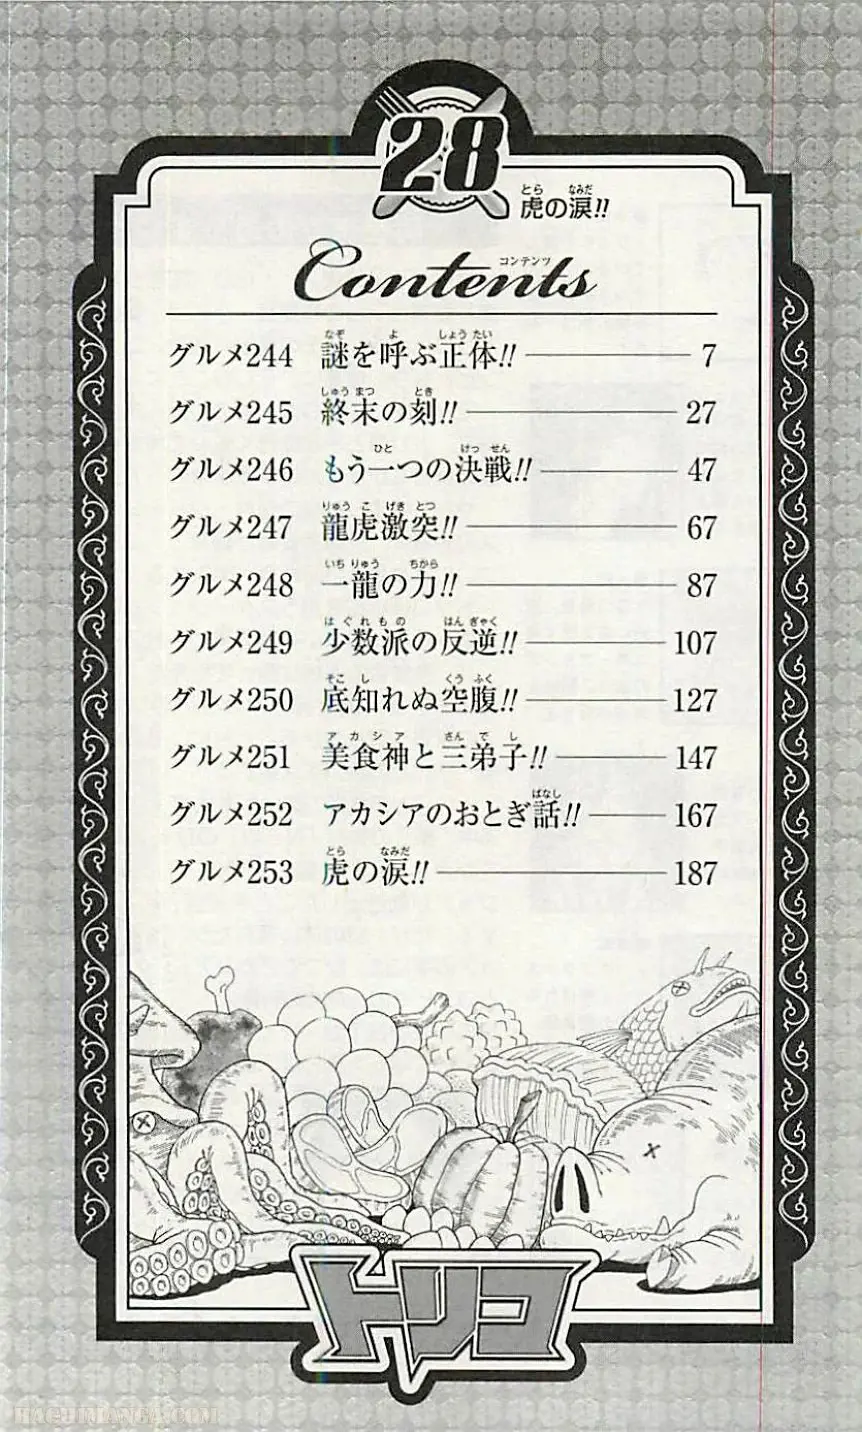 28
虎の涙!!
Contents
コンテンツ
グルメ244 謎を呼ぶ正体!! 7
グルメ245 終末の刻!! 27
グルメ246 もう一つの決戦!! 47
グルメ247 龍虎激突!! 67
グルメ248 一龍の力!! 87
グルメ249 少数派の反逆!! 107
グルメ250 底知れぬ空腹!! 127
グルメ251 美食神と三弟子!! 147
グルメ252 アカシアのおとぎ話!! 167
グルメ253 虎の涙!! 187
トリコ